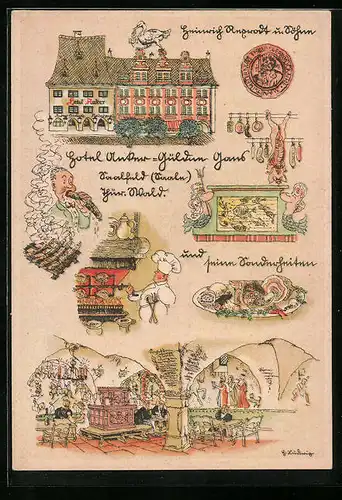 Heinrich Nexrodt u. Söhne
Hotel Anker
Hotel Anker = Güldne Gans
Saalfeld (Saale)
Thür. Wald.
und
seine Sonderheiten
H. Ludwig